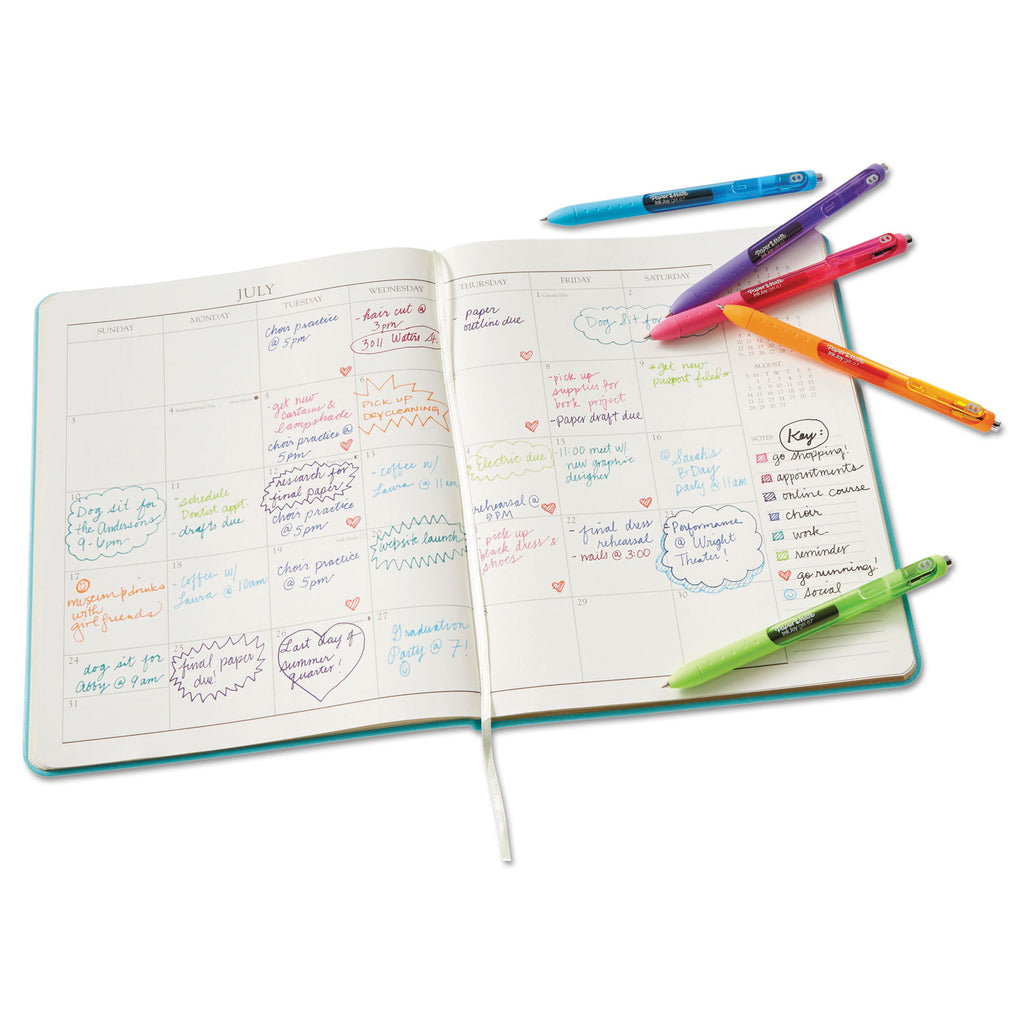 JULY
SUNDAY
MONDAY
TUESDAY
WEDNESDAY
THURSDAY
FRIDAY
SATURDAY
choir practice
@ 5pm
- hair cut @
3pm
3011 Waters
- paper
outline due
1 Canada Day
2
Dog Sit for
3
4 Independence Day
New Moon
5
- get new
curtains &
lampshade
choir practice @
5pm
6
PICK UP
DRYCLEANING
8
- pick up
supplies for
book project
- paper draft due
9
*get new
passport filed*
10
Dog sit for
the Andersons
9-6pm
11
- schedule
Dentist appt.
- drafts due
12
research for
final paper
choir practice
@ 5pm
13
- coffee w/
Laura @ 11am
Electric due
rehearsal @
5PM
15
- 11:00 meet w/
new graphic
designer
16
@ Sarah's
B-Day
party @ 11am
17
museum & drinks
with
girlfriends
18
- coffee w/
Laura @ 10am
19
Full Moon
choir practice
@ 5pm
20
website launch
- pick up
black dress &
shoes
22
- final dress
rehearsal
- nails @ 3:00
23
Performance
@ Wright
Theater!
24
dog sit for
Abby @ 9am
25
final paper
due!
26
Last day of
Summer
quarter!
27
Graduation
Party @ 7!
29
30
31
AUGUST
S M T W T F S
NOTES
Key:
go shopping!
appointments
online course
choir
work
reminder
go running!
social
PaperMate
InkJoy gel 0.7
PaperMate
InkJoy gel 0.7
PaperMate
InkJoy gel 0.7
PaperMate
InkJoy gel 0.7
PaperMate
InkJoy gel 0.7